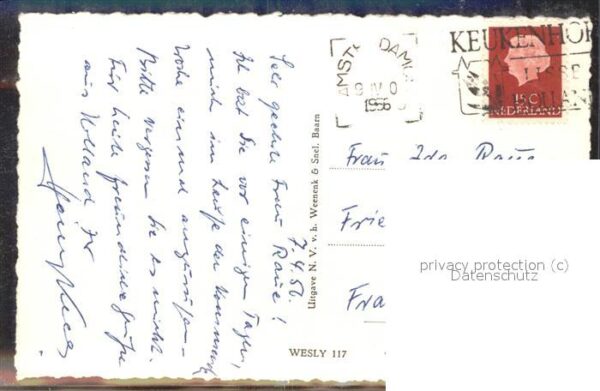 7.4.56.
Sehr geehrte Frau Raue!
Ich bat Sie vor einigen Tagen,
mich im Laufe der kommenden
Woche einmal anzurufen –
Bitte vergessen Sie es nicht.
Für heute freundliche Grüße
aus Holland Ihr
Uitgave N. V. v. h. Weenenk & Snel, Baarn
WESLY 117
AMSTERDAM
9 IV
1956
KEUKENHOF
LISSE
HOLLAND
15C
NEDERLAND
Frau Ida Raue
Frie
Fra
privacy protection (c)
Datenschutz